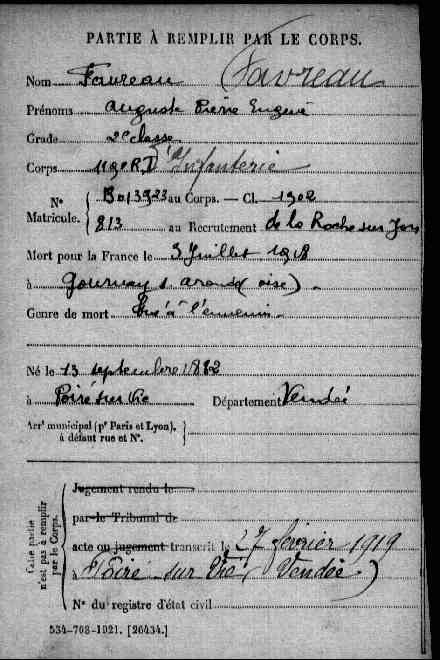 PARTIE À REMPLIR PAR LE CORPS.
Nom Favreau Favreau
Prénoms Auguste Pierre Eugene
Grade 2e classe
Corps R D'Infanterie
Nº Matricule. au Corps. — Cl. 1902
813 au Recrutement de la Roche sur Yon
Mort pour la France le 3 Juillet 1918
à Gournay s aronde (oise).
Genre de mort tué à l'ennemi.
Né le 13 septembre 1882
à Poiré sur Vie Département Vendée
Arrᵗ municipal (pʳ Paris et Lyon), à défaut rue et Nº.
Cette partie n'est pas à remplir par le Corps.
Jugement rendu le
par le Tribunal de
acte ou jugement transcrit le 27 février 1919
à Poiré sur Vie (Vendée)
Nº du registre d'état civil
534-708-1921. [26434.]